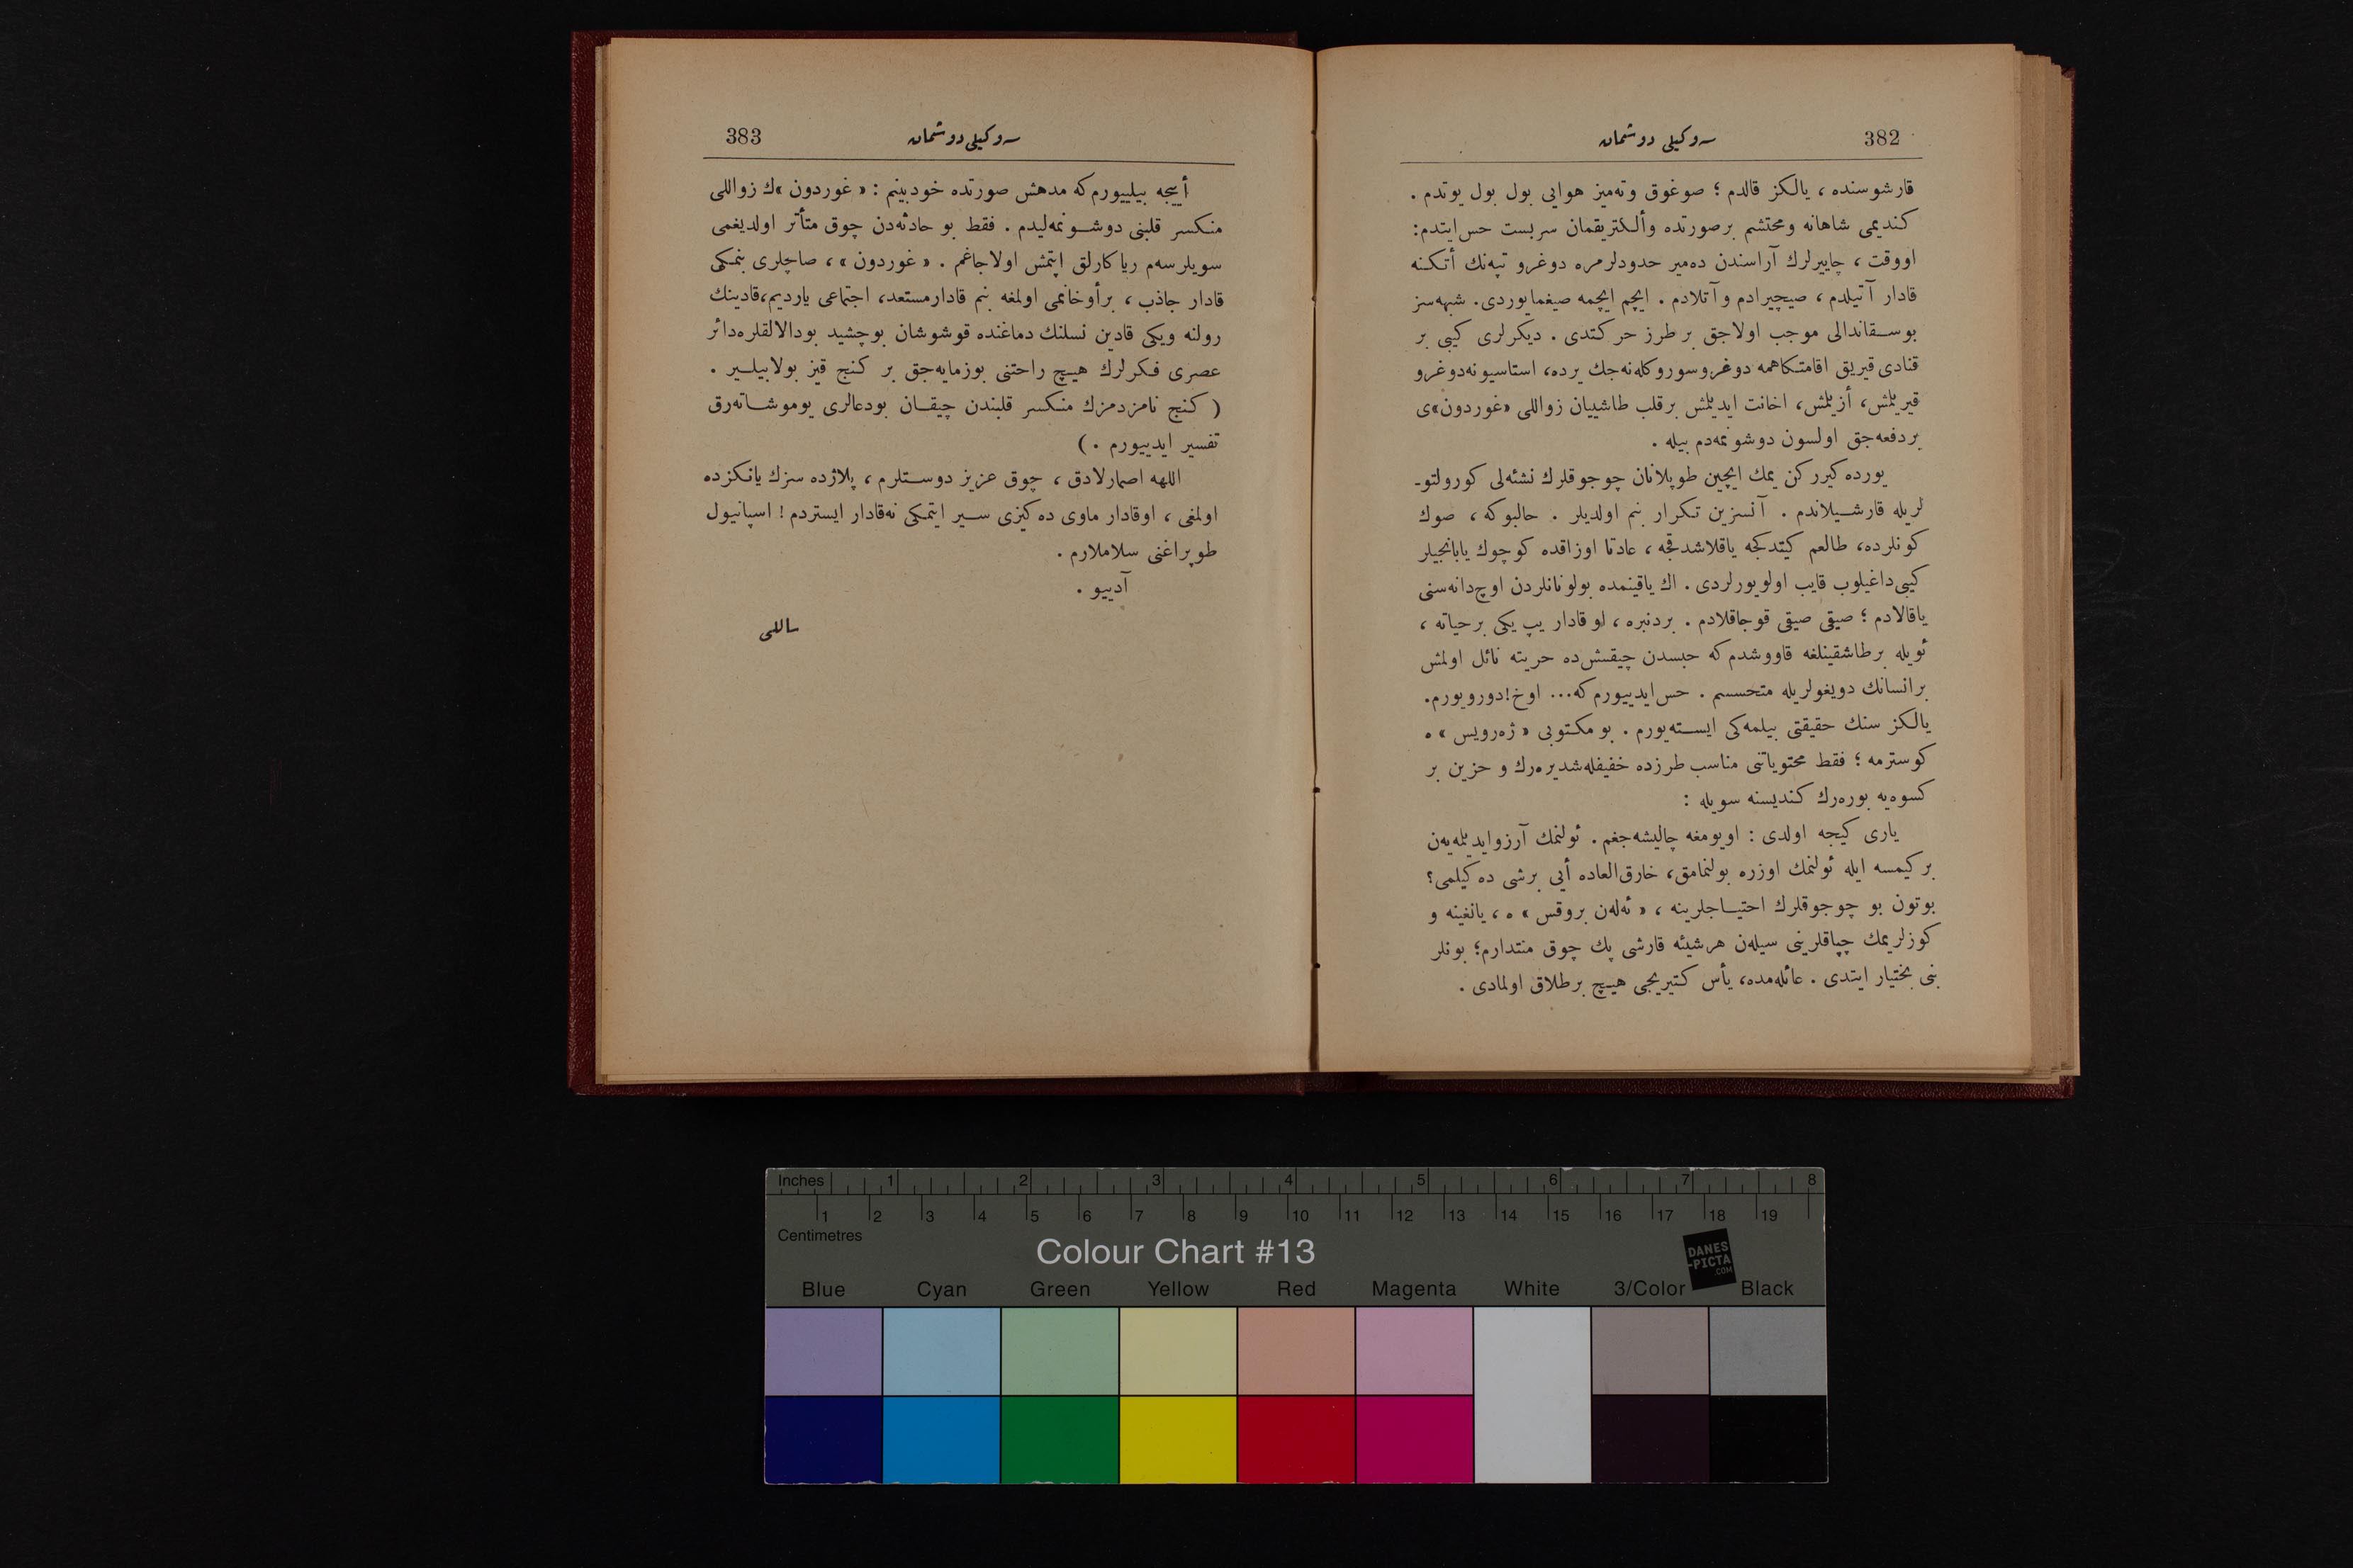 382
سوكیلی دوشمان
قارشوسنده ، یالكز قالدم ؛ صوغوق وتەمیز هوایی بول بول یوتدم .
كندیمی شاهانه ومحتشم برصورتده وألكتریقمان سربست حس‌ایتدم:
اووقت ، چاییرلرك آراسندن دەمیر حدودلرمزه دوغرو تپه‌نك أتكنه
قادار آتیلدم ، صیچیرادم وآتلادم . ایچم ایچمه صیغمایوردی. شبهه‌سز
بوسقاندالی موجب اولاجق بر طرز حركتدی . دیكرلری كیبی بر
قنادی قیریق اقامتكاهمه دوغرو سوروكله‌نه‌جك یرده، استاسیونه دوغرو
قیریلمش، أزیلمش، اخانت ایدیلمش برقلب طاشییان زواللی «غوردون»ی
بردفعه‌جق اولسون دوشونمه‌دم بیله .
یورده كیرركن یمك ایچین طوپلانان چوجوقلرك نشئه‌لی كورولتو-
لریله قارشیلاندم . آنسزین تكرار بنم اولدیلر . حالبوكه ، صوك
كونلرده، طالعم كیتدكجه یاقلاشدقجه ، عادتا اوزاقده كوچوك یابانجیلر
كیبی داغیلوب قایب اولویورلردی . اك یاقینمده بولونانلردن اوچ دانه‌سنی
یاقالادم ؛ صیقی صیقی قوجاقلادم . بردنبره ، او قادار یپ یكی برحیاته ،
ئویله برطاشقینلغه قاووشدم‌كه حبسدن چیقمش‌ده حریته نائل اولمش
برانسانك دویغولریله متحسسم . حس‌ایدییورم‌كه... اوخ! دورویورم.
یالكز سنك حقیقتی بیلمه‌كی ایسته‌یورم . بو مكتوبی « ژه‌رویس » ه
كوسترمه ؛ فقط محتویاتنی مناسب طرزده خفیفله‌شدیره‌رك و حزین بر
كسوه‌یه بوره‌رك كندیسنه سویله :
یاری كیجه اولدی : اویومغه چالیشه‌جغم . ئولنمك آرزوایدیلمه‌یەن
بر كیمسه ایله ئولنمك اوزره بولنمامق، خارق‌العاده أیی برشی ده‌كیلمی؟
بوتون بو چوجوقلرك احتیاجلرینه ، « ئەلەن بروقس » ه ، یانغینه و
كوزلریمك چپاقلرینی سیلەن هرشیئه قارشی پك چوق منتدارم؛ بونلر
بنی بختیار ایتدی . عائله‌مده، یأس كتیریجی هیچ برطلاق اولمادی .
383
سوكیلی دوشمان
أییجه بیلییورم‌كه مدهش صورتده خودبینم : « غوردون »ك زواللی
منكسر قلبنی دوشونمه‌لیدم . فقط بو حادثه‌دن چوق متأثر اولدیغمی
سویلرسه‌م ریاكارلق ایتمش اولاجاغم . « غوردون » ، صاچلری بنمكی
قادار جاذب ، برأوخانمی اولمغه بنم قادار مستعد، اجتماعی یاردیم،قادینك
رولنه ویكی قادین نسلنك دماغنده قوشوشان بوچشید بودالالقلره‌دائر
عصری فكرلرك هیچ راحتنی بوزمایه‌جق بر كنج قیز بولابیلیر .
( كنج نامزدمزك منكسر قلبندن چیقان بودعالری یوموشاته‌رق
تفسیر ایدییورم . )
اللهه اصمارلادق ، چوق عزیز دوستلرم ، پلاژده سزك یانكزده
اولمغی ، اوقادار ماوی ده‌كیزی سیر ایتمكی نه‌قادار ایستردم ! اسپانیول
طوپراغنی سلاملارم .
آدییو .
ساللی
Inches 1 2 3 4 5 6 7 8
1 2 3 4 5 6 7 8 9 10 11 12 13 14 15 16 17 18 19
Centimetres
Colour Chart #13
DANES
-PICTA
.COM
Blue Cyan Green Yellow Red Magenta White 3/Color Black